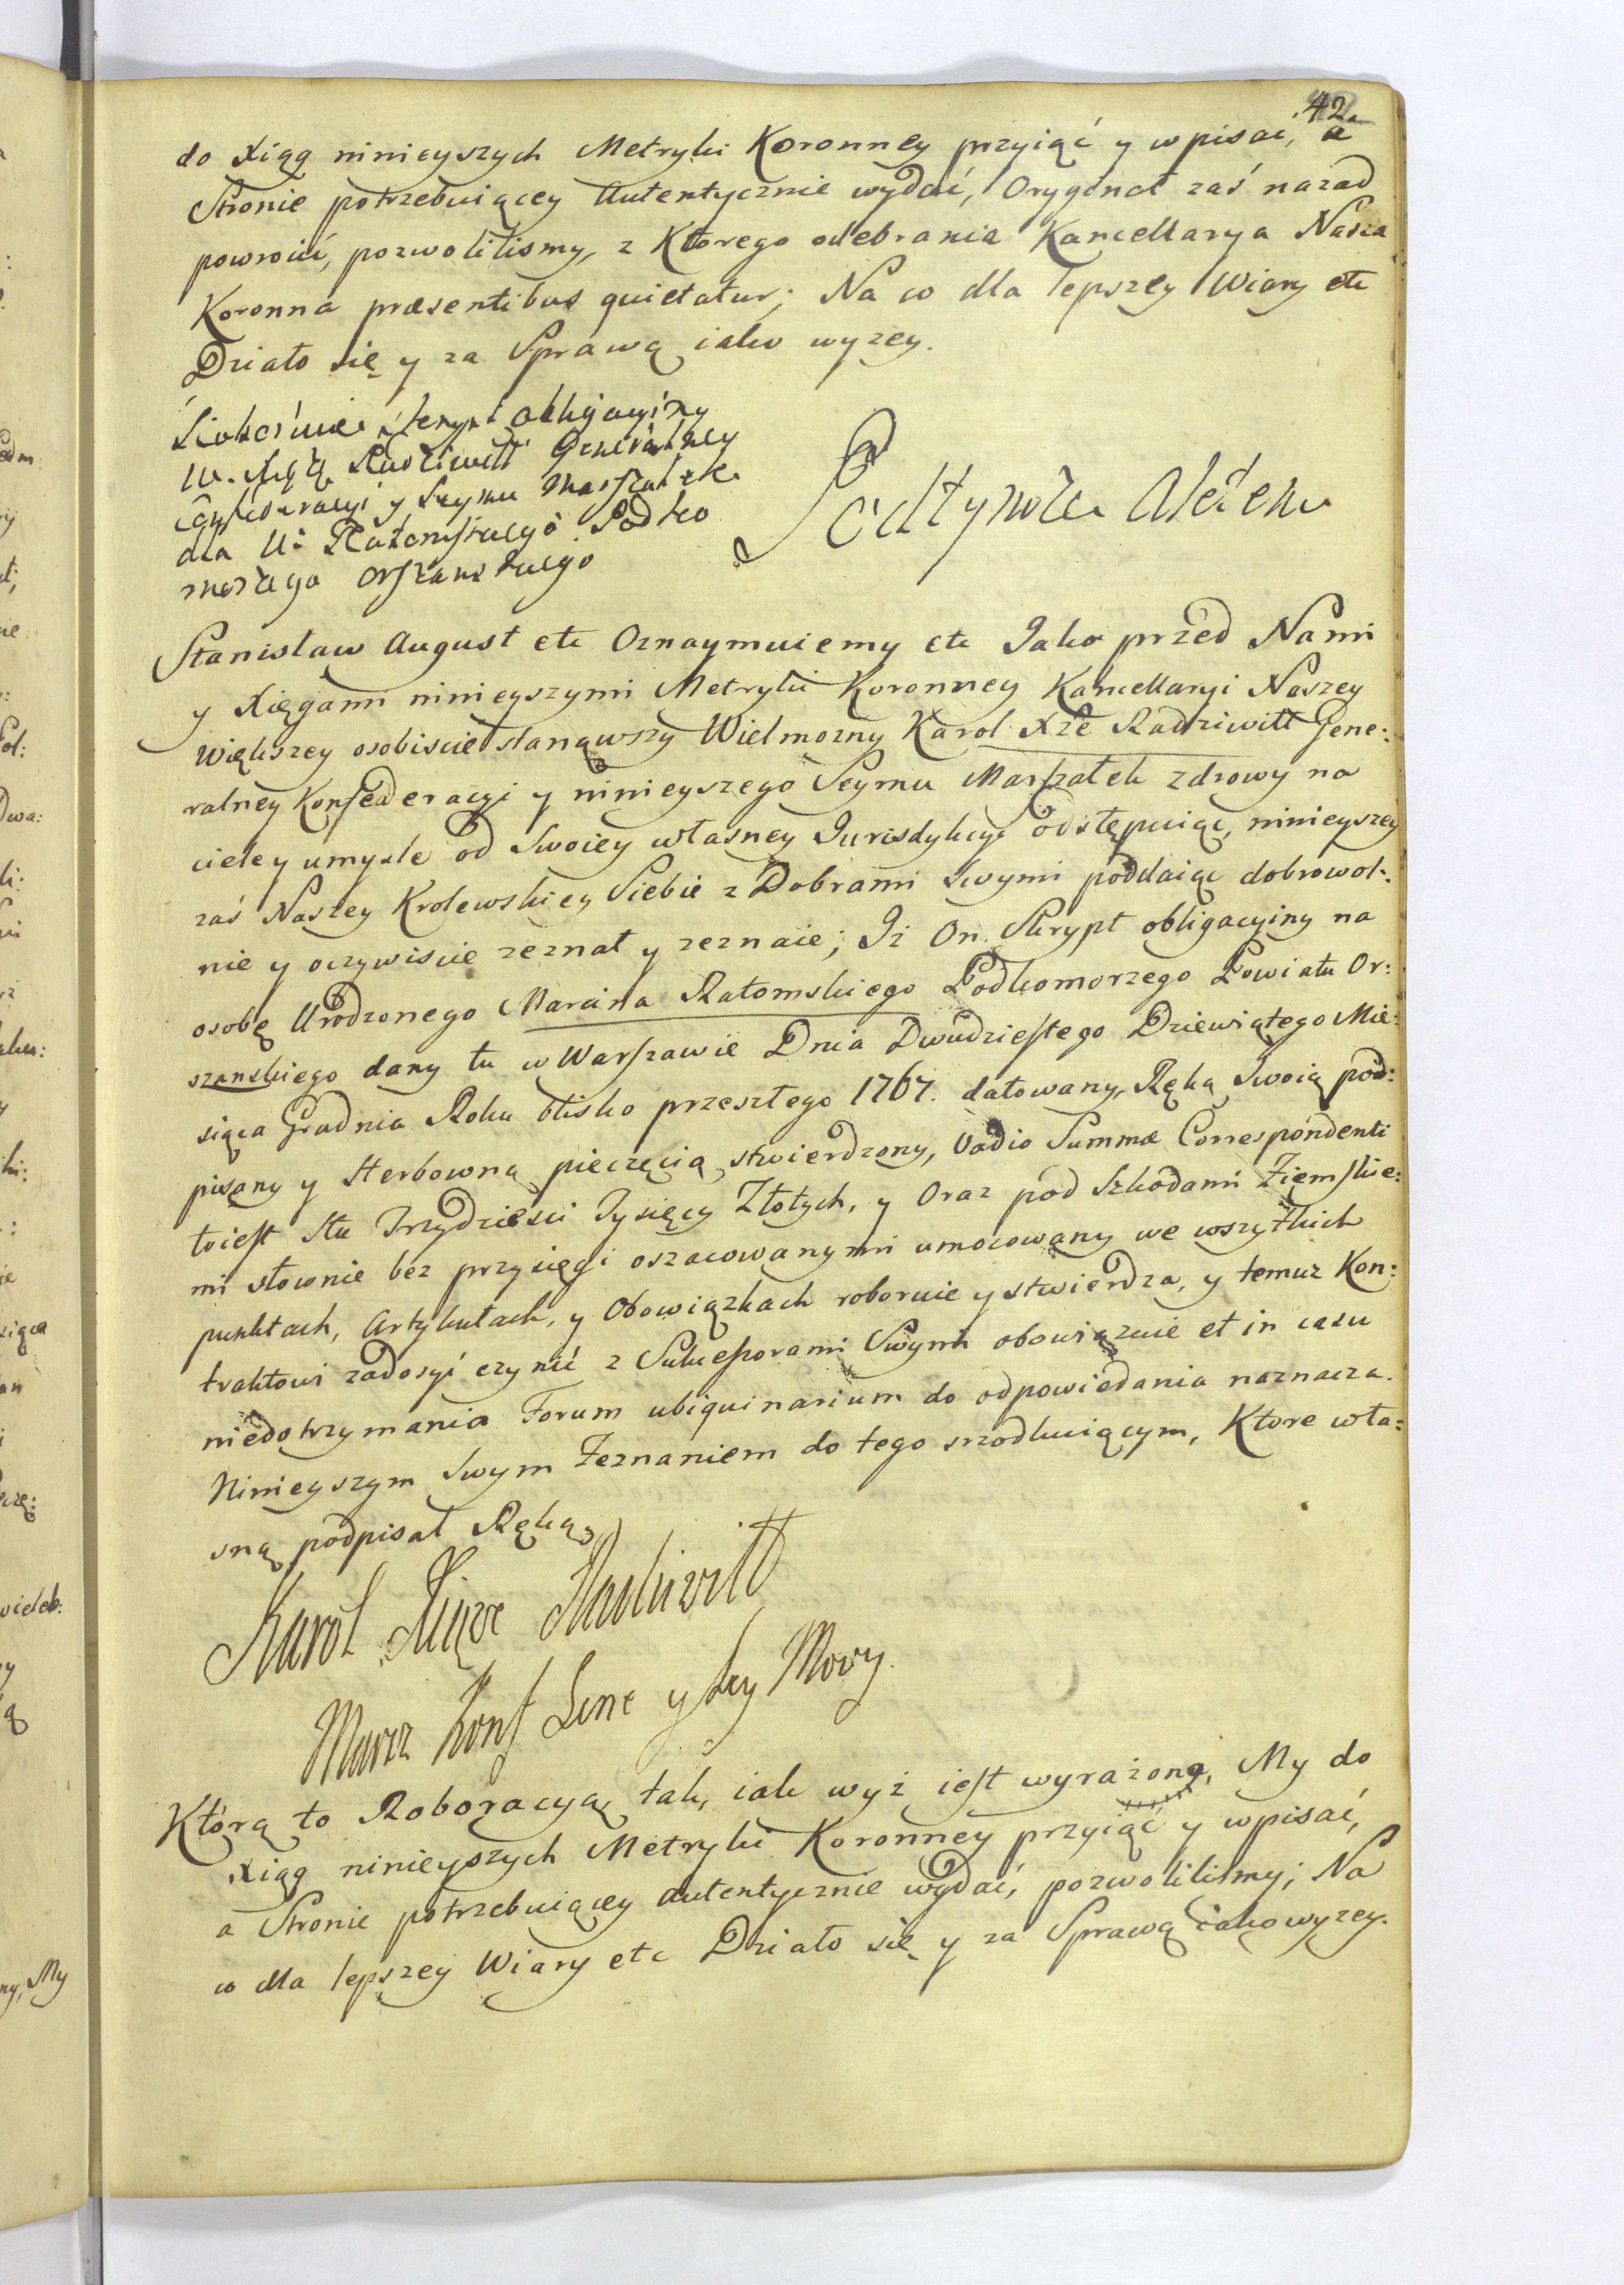 42
do Xiąg ninieyszych Metryki Koronney przyiąć y wpisać, a
Stronie potrzebuiącey Autentycznie wydać, Orygenał zaś nazad
powrocić, pozwolilismy, z Ktorego odebrania Kancellarya Nasza
Koronna præsentibus quietatur; Na co dla lepszey Wiary etc
Działo się y za Sprawą iako wyzey.
skrypt obligacyiny
Radziwiłł Generalney
Confederacyi y Seymu Marszałek
dla U: Ratomskiego Podko
morzego Orszanskiego
Stanisław August etc Oznaymuiemy etc Jako przed Nami
y Xięgami ninieyszymi Metryki Koronney Kancellaryi Naszey
Większey osobiscie stanąwszy Wielmozny Karol Xże Radziwiłł Gene:
ralney Konfederacyi y ninieyszego Seymu Marszałek zdrowy na
ciele y umysle od Swoiey własney Jurisdykcyi odstępuiąc, ninieyszey
zaś Naszey Krolewskiey Siebie z Dobrami swymi poddaiąc dobrowol:
nie y oczywiscie zeznał y zeznaie; Iż On Skrypt obligacyiny na
osobę Urodzonego Marcina Ratomskiego Podkomorzego Powiatu Or:
szanskiego dany tu w Warszawie Dnia Dwudziestego Dziewiątego Mie:
siąca Grudnia Roku blisko przeszłego 1767. datowany, Ręką Swoią pod:
pisany y Herbowną pieczęcią stwierdzony, Vadio Summæ Correspondenti
toiest Stu Trzydziesci Tysięcy Złotych, y Oraz pod Szkodami Ziemskie:
mi słownie bez przysięgi oszacowanymi umocowany we wszytkich
punktach, Artykułach, y Obowiązkach roboruie y stwierdza, y temuz Kon:
traktowi zadosyć czynić z Sukcessorami Swymi obowiązuie et in casu
niedotrzymania Forum ubiquinarium do odpowiedania naznacza.
Ninieyszym Swym Zeznaniem do tego srzodkuiącym, Ktore wła:
sną podpisał Ręką,
Karol Xiąże Radziwiłł
Marsz Konf Gene y Sey Mowy.
Którą to Roboracyą, tak, iak wyż iest wyrażoną, My do
Xiąg ninieyszych Metryki Koronney przyiąć y wpisać,
a Stronie potrzebuiącey Autentycznie wydać, pozwolilismy; Na
co dla lepszey Wiary etc Działo się y za Sprawą iako wyzey.